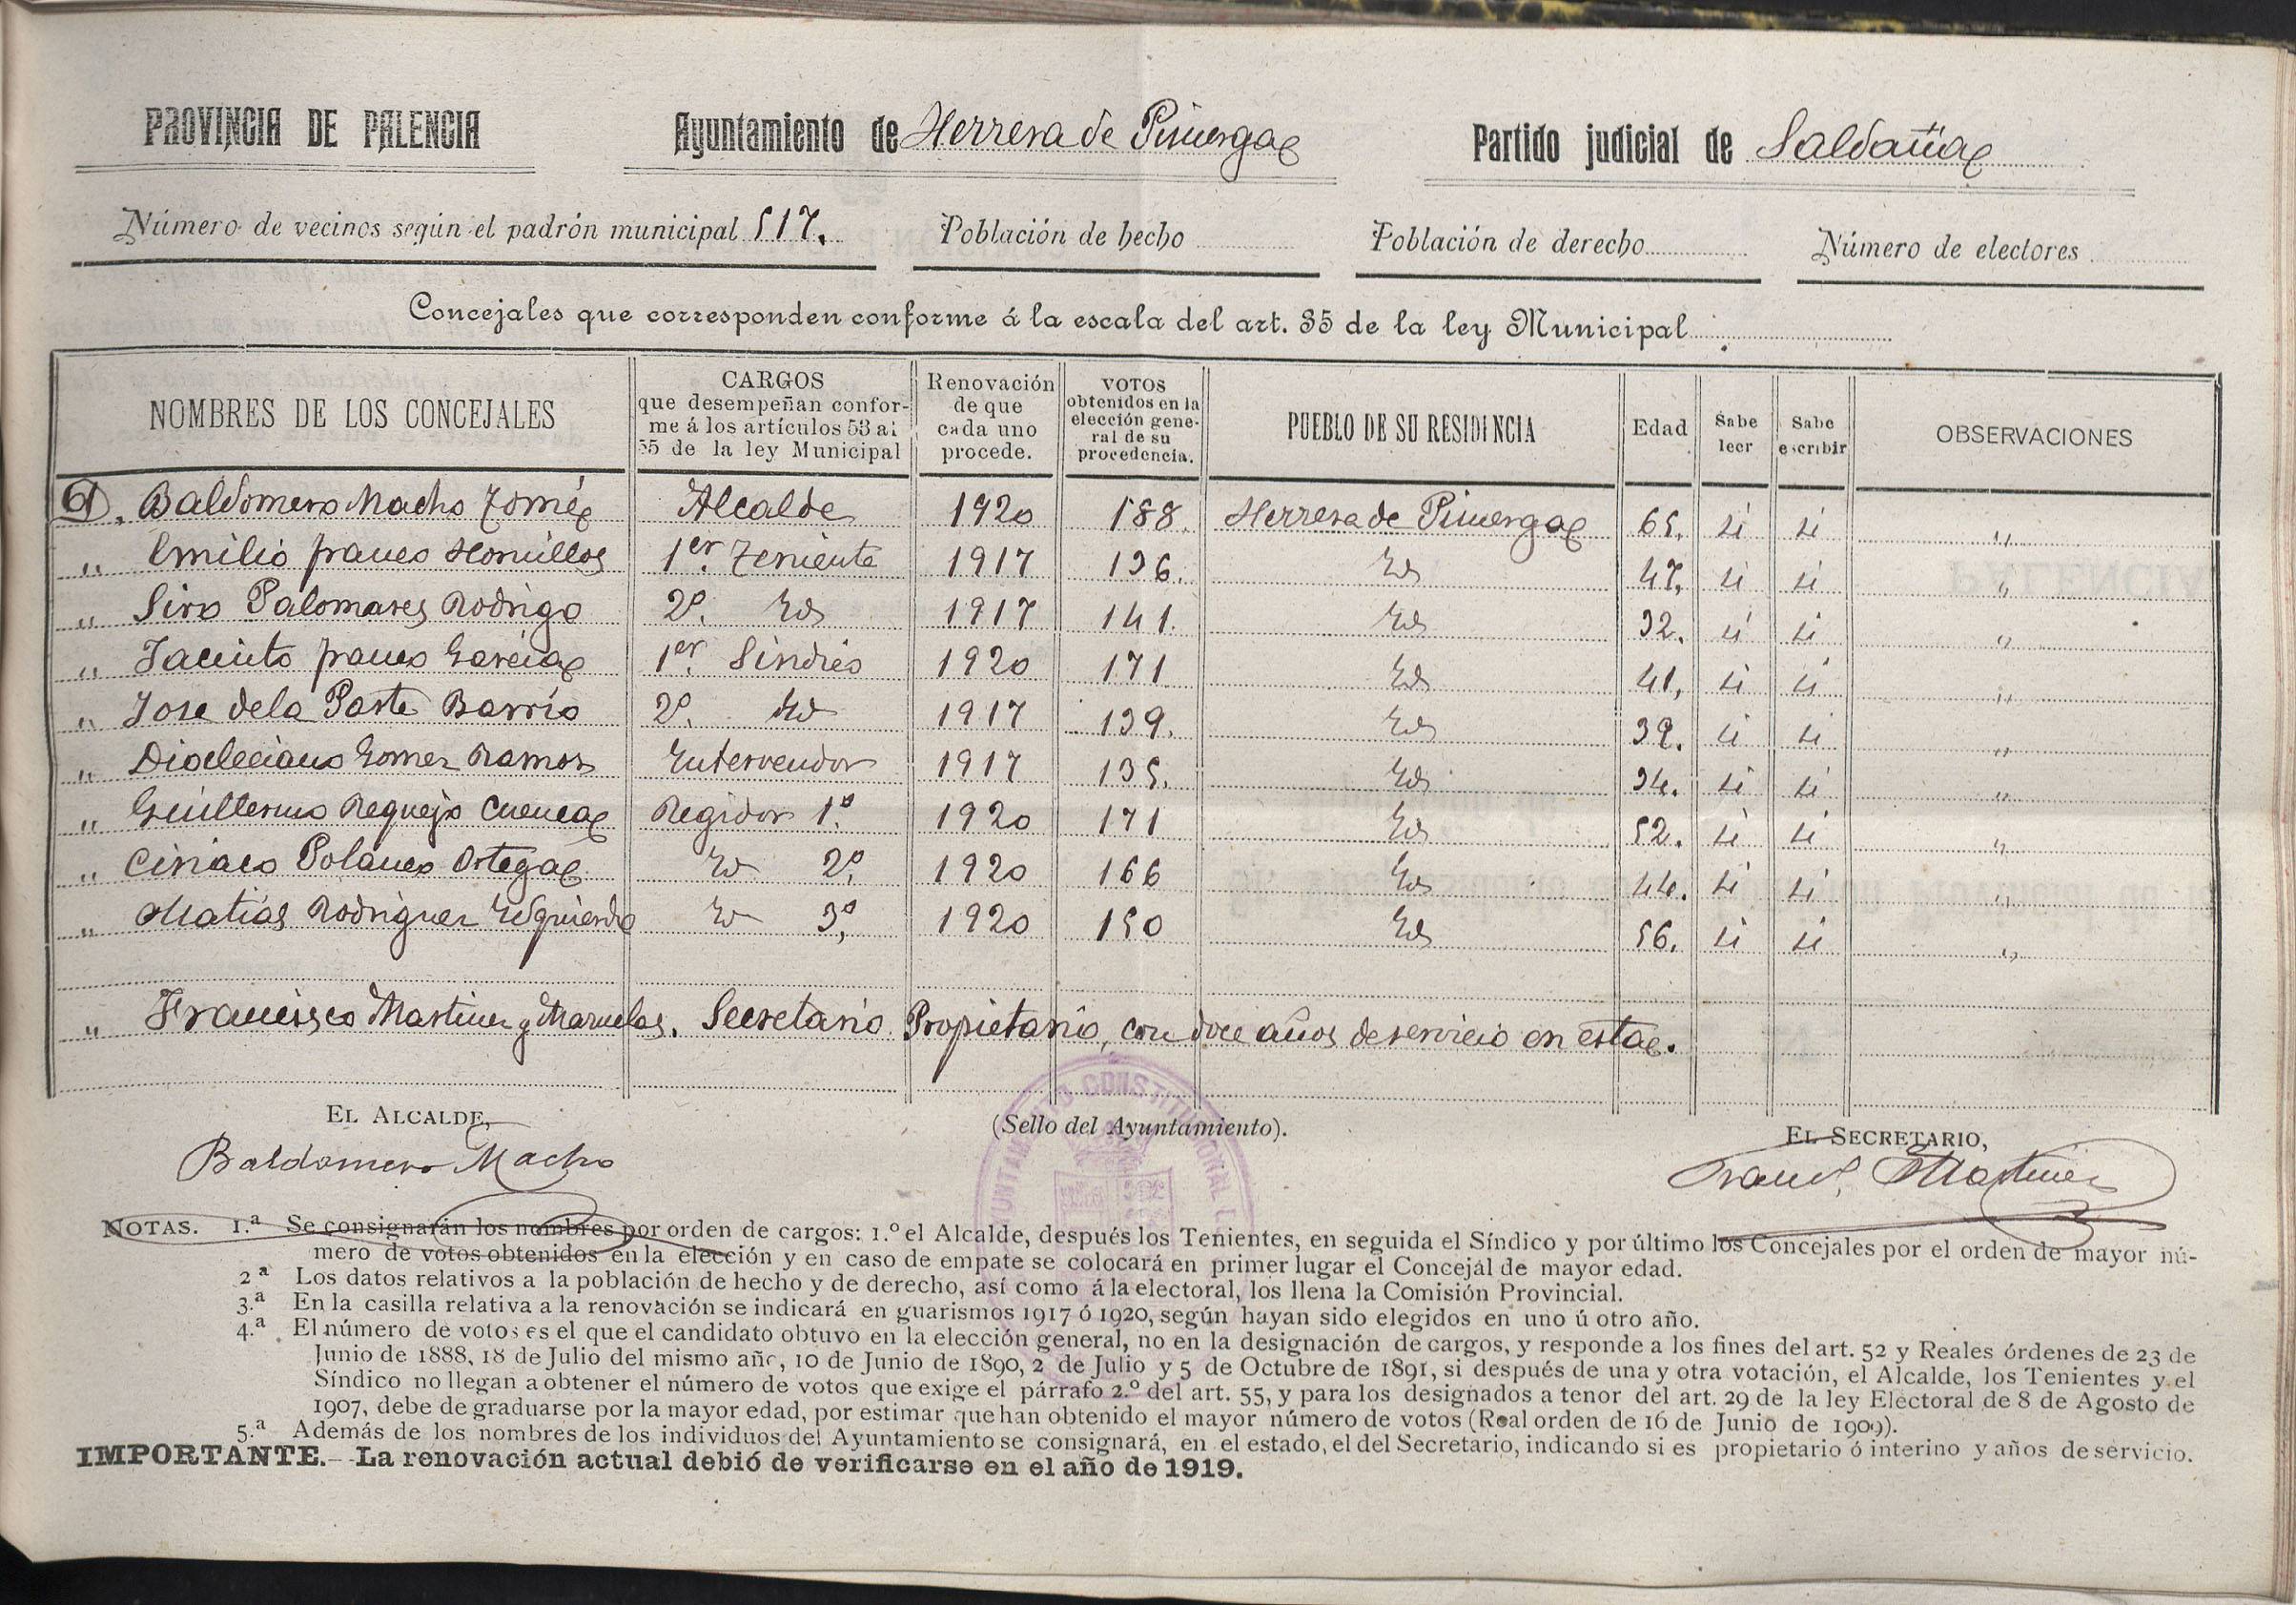 PROVINCIA DE PALENCIA Ayuntamiento de Herrera de Pisuerga Partido judicial de Saldaña
Número de vecinos según el padrón municipal 517. Población de hecho Población de derecho Número de electores
Concejales que corresponden conforme á la escala del art. 35 de la ley Municipal
NOMBRES DE LOS CONCEJALES CARGOS que desempeñan conforme á los artículos 53 al 55 de la ley Municipal Renovación de que cada uno procede. VOTOS obtenidos en la elección general de su procedencia. PUEBLO DE SU RESIDENCIA Edad Sabe leer Sabe escribir OBSERVACIONES
D. Baldomero Macho Tomé Alcalde 1920 188. Herrera de Pisuerga 65. si si "
" Emilio franco Hornillos 1er. Teniente 1917 136. Id 47. si si "
" Siro Palomares Rodrigo 2º. Id 1917 141. Id 32. si si "
" Jacinto franco Garcia 1er. Sindico 1920 171 Id 41, si si "
" Jose dela Parte Barrio 2º. Id 1917 139. Id 39. si si "
" Diocleciano Gomez Ramos Interventor 1917 135. Id 34. si si "
" Guillermo Requejo Cuenca Regidor 1º. 1920 171 Id 52. si si "
" Ciriaco Polanco Ortega Id 2º. 1920 166 Id 44. si si "
" Matias Rodriguez Izquierdo Id 3º, 1920 150 Id 56. si si "
" Francisco Martinez y Mazuelas. Secretario Propietario, con doce años de servicio en esta.
EL ALCALDE, (Sello del Ayuntamiento). EL SECRETARIO,
Baldomero Macho Franco. Martinez
AYUNTAMIENTO CONSTITUCIONAL
NOTAS. 1.ª Se consignarán los nombres por orden de cargos: 1.º el Alcalde, después los Tenientes, en seguida el Síndico y por último los Concejales por el orden de mayor nú-
mero de votos obtenidos en la elección y en caso de empate se colocará en primer lugar el Concejal de mayor edad.
2ª Los datos relativos a la población de hecho y de derecho, así como á la electoral, los llena la Comisión Provincial.
3.ª En la casilla relativa a la renovación se indicará en guarismos 1917 ó 1920, según hayan sido elegidos en uno ú otro año.
4.ª El número de votos es el que el candidato obtuvo en la elección general, no en la designación de cargos, y responde a los fines del art. 52 y Reales órdenes de 23 de
Junio de 1888, 18 de Julio del mismo año, 10 de Junio de 1890, 2 de Julio y 5 de Octubre de 1891, si después de una y otra votación, el Alcalde, los Tenientes y el
Síndico no llegan a obtener el número de votos que exige el párrafo 2.º del art. 55, y para los designados a tenor del art. 29 de la ley Electoral de 8 de Agosto de
1907, debe de graduarse por la mayor edad, por estimar que han obtenido el mayor número de votos (Real orden de 16 de Junio de 1909).
5.ª Además de los nombres de los individuos del Ayuntamiento se consignará, en el estado, el del Secretario, indicando si es propietario ó interino y años de servicio.
IMPORTANTE.--La renovación actual debió de verificarse en el año de 1919.